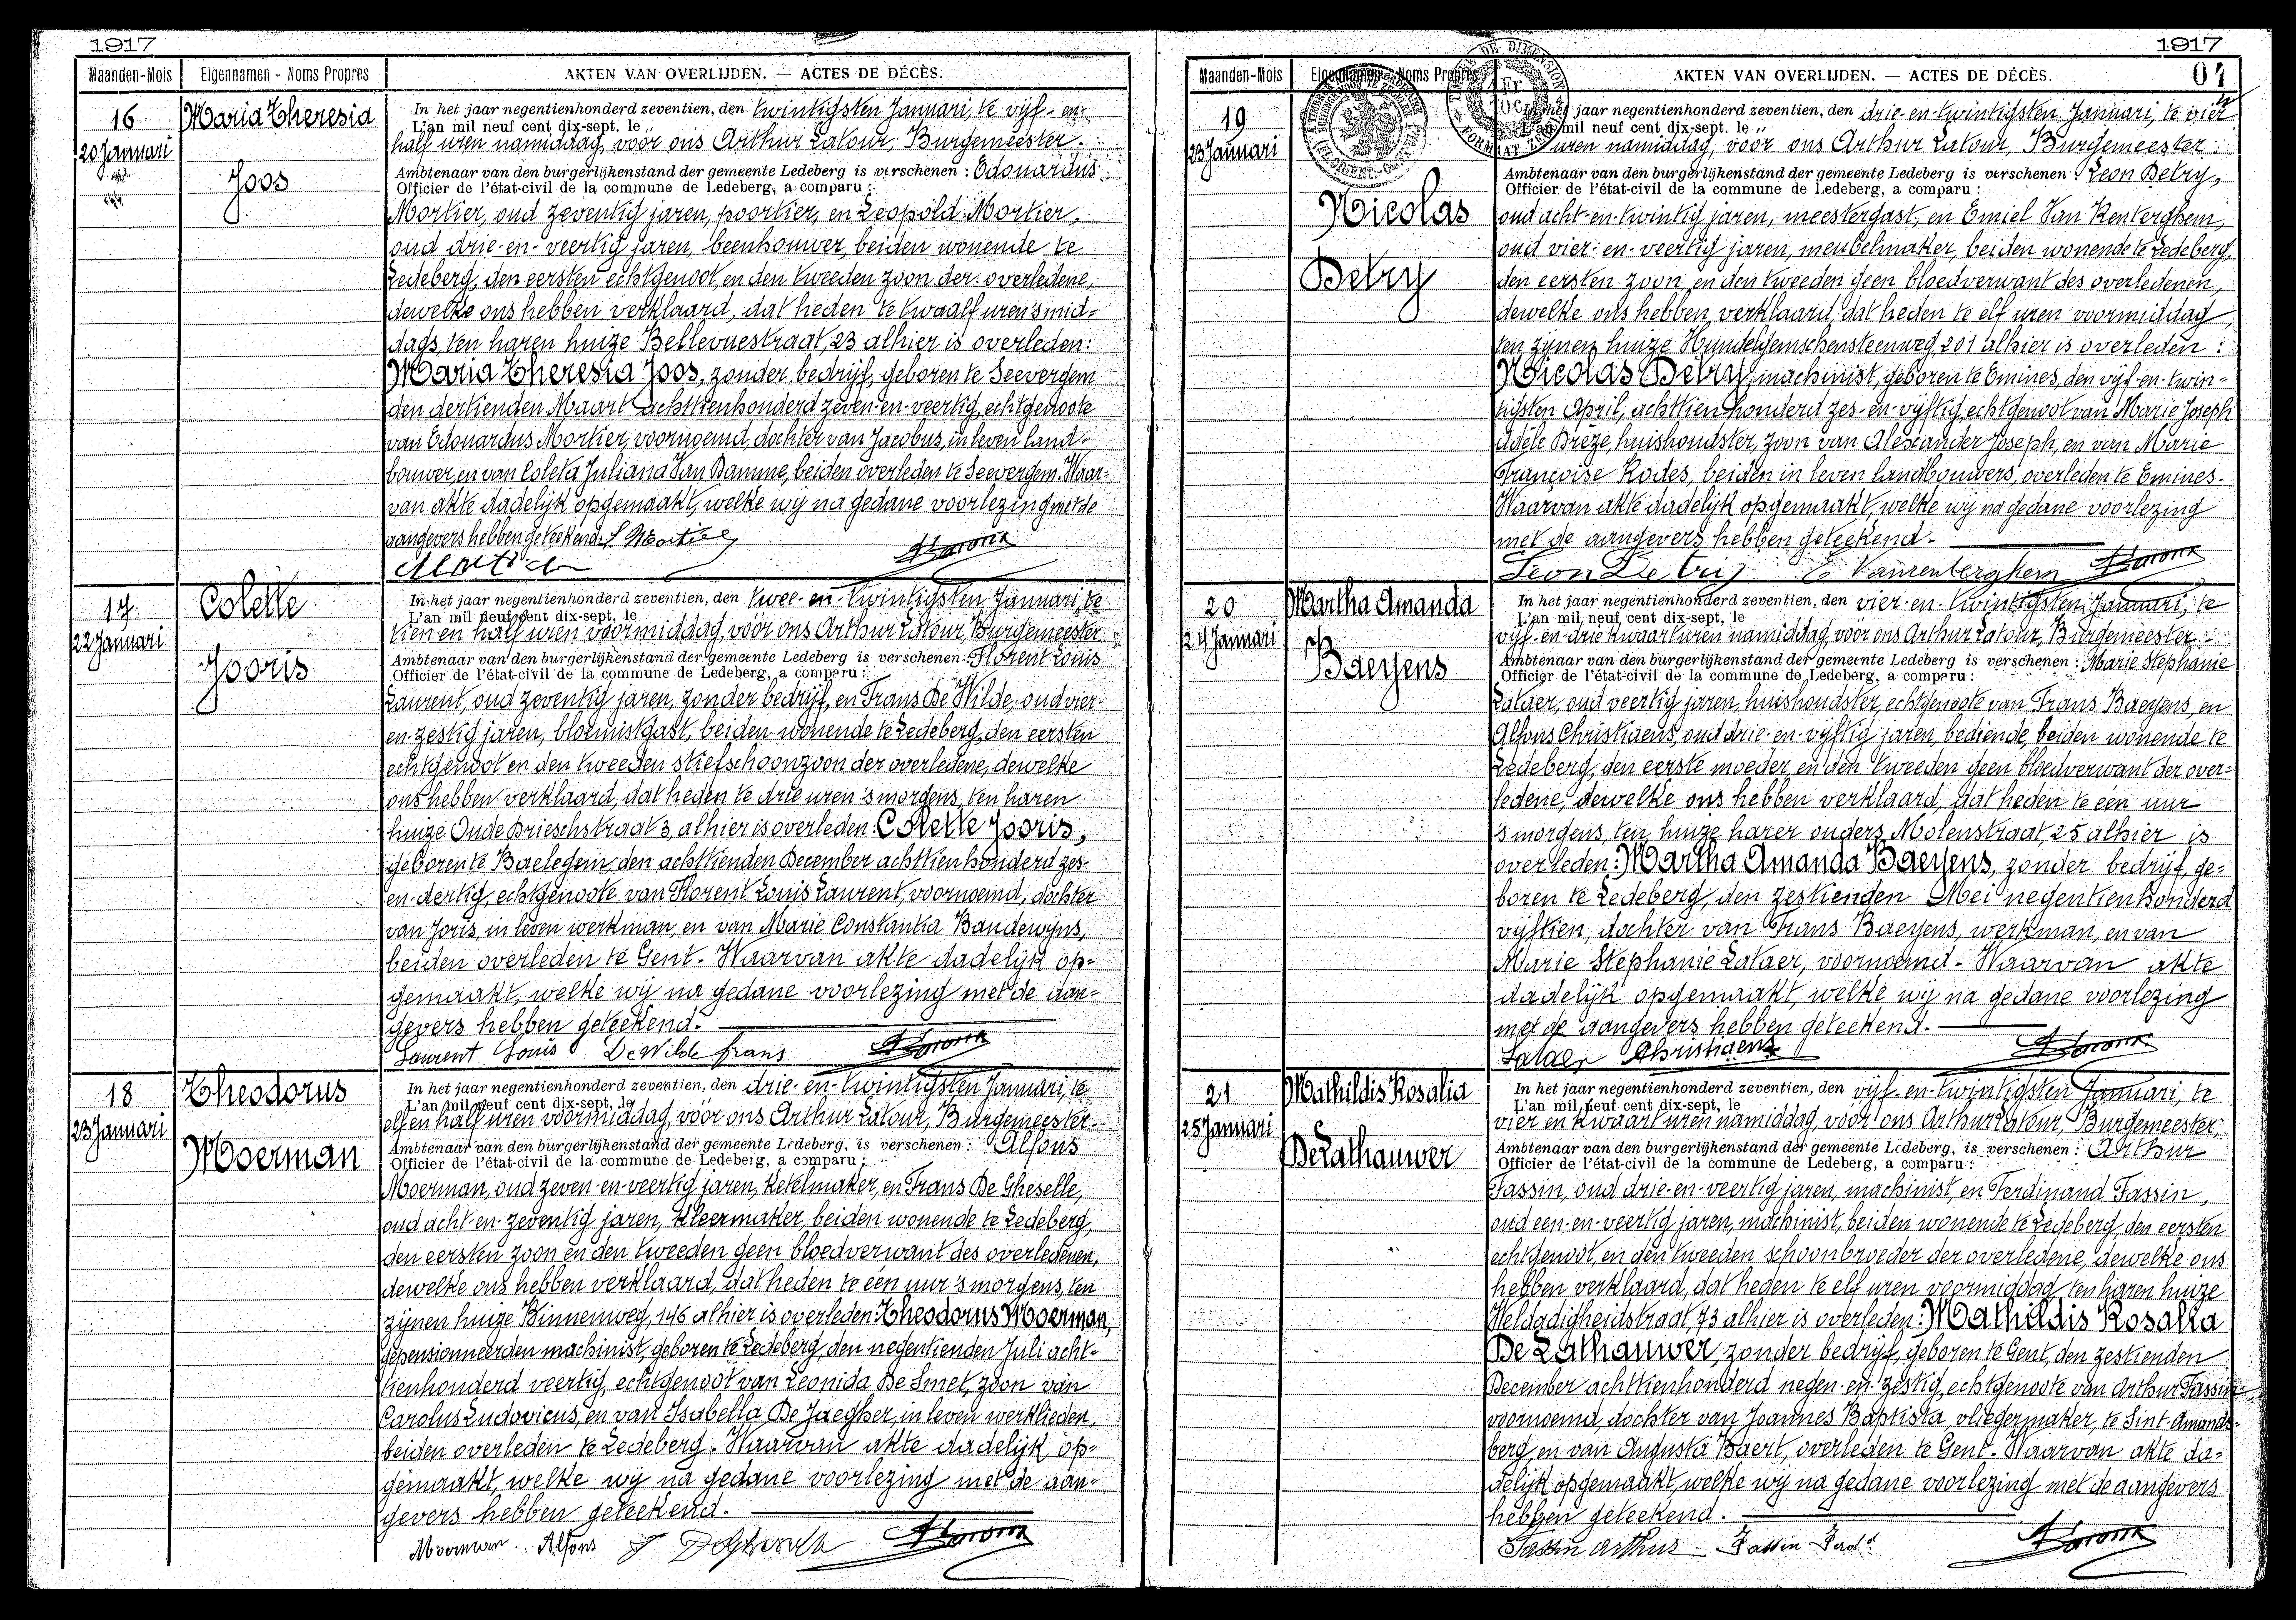 1917
Maanden-Mois Eigennamen - Noms Propres AKTEN VAN OVERLIJDEN. — ACTES DE DÉCÈS.
16
20 Januari
Maria Theresia
Joos
In het jaar negentienhonderd zeventien, den twintigsten Januari, te vijf- en-
L'an mil neuf cent dix-sept, le
half uren namiddag, voor ons Arthur Latour, Burgemeester.
Ambtenaar van den burgerlijkenstand der gemeente Ledeberg is verschenen : Edouardus
Officier de l'état-civil de la commune de Ledeberg, a comparu :
Mortier, oud zeventig jaren, poortier, en Leopold Mortier,
oud drie-en-veertig jaren, beenhouwer, beiden wonende te
Ledeberg, den eersten echtgenoot, en den tweeden zoon der overledene,
dewelke ons hebben verklaard, dat heden te twaalf uren 's mid-
dags, ten haren huize Bellevuestraat, 23 alhier is overleden:
Maria Theresia Joos, zonder bedrijf, geboren te Seevergem
den dertienden Maart achttienhonderd zeven-en-veertig, echtgenoote
van Edouardus Mortier, voornoemd, dochter van Jacobus, in leven land-
bouwer, en van Coleta Juliana Van Damme, beiden overleden te Seevergem. Waar-
van akte dadelijk opgemaakt, welke wij na gedane voorlezing met de
aangevers hebben geteekend. L Mortier
17
22 Januari
Colette
Jooris
In het jaar negentienhonderd zeventien, den twee-en-twintigsten Januari, te
L'an mil neuf cent dix-sept, le
tien en half uren voormiddag, voor ons Arthur Latour, Burgemeester
Ambtenaar van den burgerlijkenstand der gemeente Ledeberg is verschenen : Florent Louis
Officier de l'état-civil de la commune de Ledeberg, a comparu :
Laurent, oud zeventig jaren, zonder bedrijf, en Frans De Wilde, oud vier-
en-zestig jaren, bloemistgast, beiden wonende te Ledeberg, den eersten
echtgenoot en den tweeden stiefschoonzoon der overledene, dewelke
ons hebben verklaard, dat heden te drie uren 's morgens, ten haren
huize Oude Brieschstraat 3, alhier is overleden: Colette Jooris,
geboren te Baelegem, den achttienden December achttienhonderd zes-
en-dertig, echtgenoote van Florent Louis Laurent, voornoemd, dochter
van Joris, in leven werkman, en van Marie Constantia Baudewijns,
beiden overleden te Gent. Waarvan akte dadelijk op-
gemaakt, welke wij na gedane voorlezing met de aan-
gevers hebben geteekend.
Laurent Louis DeWilde frans
18
23 Januari
Theodorus
Moerman
In het jaar negentienhonderd zeventien, den drie-en-twintigsten Januari, te
L'an mil neuf cent dix-sept, le
elf en half uren voormiddag, voor ons Arthur Latour, Burgemeester.
Ambtenaar van den burgerlijkenstand der gemeente Ledeberg, is verschenen : Alfons
Officier de l'état-civil de la commune de Ledeberg, a comparu :
Moerman, oud zeven-en-veertig jaren, ketelmaker, en Frans De Gheselle,
oud acht-en-zeventig jaren, kleermaker, beiden wonende te Ledeberg,
den eersten zoon en den tweeden geen bloedverwant des overledenen,
dewelke ons hebben verklaard, dat heden te één uur 's morgens, ten
zijnen huize Binnenweg, 146 alhier is overleden: Theodorus Moerman,
gepensionneerden machinist, geboren te Ledeberg, den negentienden Juli acht-
tienhonderd veertig, echtgenoot van Leonida De Smet, zoon van
Carolus Ludovicus, en van Isabella De Jaegher, in leven werklieden,
beiden overleden te Ledeberg. Waarvan akte dadelijk op-
gemaakt, welke wij na gedane voorlezing met de aan-
gevers hebben geteekend.
Moerman Alfons
1917
04
Maanden-Mois Eigennamen - Noms Propres AKTEN VAN OVERLIJDEN. — ACTES DE DÉCÈS.
19
23 Januari
Nicolas
Detry
In het jaar negentienhonderd zeventien, den drie-en-twintigsten Januari, te vier
L'an mil neuf cent dix-sept, le
uren namiddag, voor ons Arthur Latour, Burgemeester.
Ambtenaar van den burgerlijkenstand der gemeente Ledeberg is verschenen : Leon Detry,
Officier de l'état-civil de la commune de Ledeberg, a comparu :
oud acht-en-twintig jaren, meestergast, en Emiel Van Renterghem,
oud vier-en-veertig jaren, meubelmaker, beiden wonende te Ledeberg,
den eersten zoon, en den tweeden geen bloedverwant des overledenen,
dewelke ons hebben verklaard, dat heden te elf uren voormiddag,
ten zijnen huize Hundelgemschensteenweg, 201 alhier is overleden :
Nicolas Detry, machinist, geboren te Emines, den vijf-en-twin-
tigsten April, achttienhonderd zes-en-vijftig, echtgenoot van Marie Joseph
Adèle Brèze, huishoudster, zoon van Alexander Joseph, en van Marie
Françoise Rodes, beiden in leven landbouwers, overleden te Emines.
Waarvan akte dadelijk opgemaakt, welke wij na gedane voorlezing
met de aangevers hebben geteekend.
Leon Detry E Vanrenterghem
20
24 Januari
Martha Amanda
Baeyens
In het jaar negentienhonderd zeventien, den vier-en-twintigsten Januari, te
L'an mil neuf cent dix-sept, le
vijf-en-driekwaart uren namiddag, voor ons Arthur Latour, Burgemeester.
Ambtenaar van den burgerlijkenstand der gemeente Ledeberg is verschenen : Marie Stephanie
Officier de l'état-civil de la commune de Ledeberg, a comparu :
Lataer, oud veertig jaren, huishoudster, echtgenoote van Frans Baeyens, en
Alfons Christiaens, oud drie-en-vijftig jaren, bediende, beiden wonende te
Ledeberg, den eerste moeder, en den tweeden geen bloedverwant der over-
ledene, dewelke ons hebben verklaard, dat heden te één uur
's morgens, ten huize harer ouders, Molenstraat, 25 alhier is
overleden: Martha Amanda Baeyens, zonder bedrijf, ge-
boren te Ledeberg, den zestienden Mei negentienhonderd
vijftien, dochter van Frans Baeyens, werkman, en van
Marie Stephanie Lataer, voornoemd. Waarvan akte
dadelijk opgemaakt, welke wij na gedane voorlezing
met de aangevers hebben geteekend.
Lataer Christiaens
21
25 Januari
Mathildis Rosalia
De Lathauwer
In het jaar negentienhonderd zeventien, den vijf-en-twintigsten Januari, te
L'an mil neuf cent dix-sept, le
vier en kwaart uren namiddag, voor ons Arthur Latour, Burgemeester,
Ambtenaar van den burgerlijkenstand der gemeente Ledeberg, is verschenen : Arthur
Officier de l'état-civil de la commune de Ledeberg, a comparu :
Fassin, oud drie-en-veertig jaren, machinist, en Ferdinand Fassin,
oud een-en-veertig jaren, machinist, beiden wonende te Ledeberg, den eersten
echtgenoot, en den tweeden schoonbroeder der overledene, dewelke ons
hebben verklaard, dat heden te elf uren voormiddag, ten haren huize
Weldadigheidstraat, 73 alhier is overleden: Mathildis Rosalia
De Lathauwer, zonder bedrijf, geboren te Gent, den zestienden
December achttienhonderd negen-en-zestig, echtgenoote van Arthur Fassin
voornoemd, dochter van Joannes Baptista, vliegermaker, te Sint-Amands-
berg, en van Augusta Baert, overleden te Gent. Waarvan akte da-
delijk opgemaakt, welke wij na gedane voorlezing met de aangevers
hebben geteekend.
Fassin Arthur Fassin Ferd^d